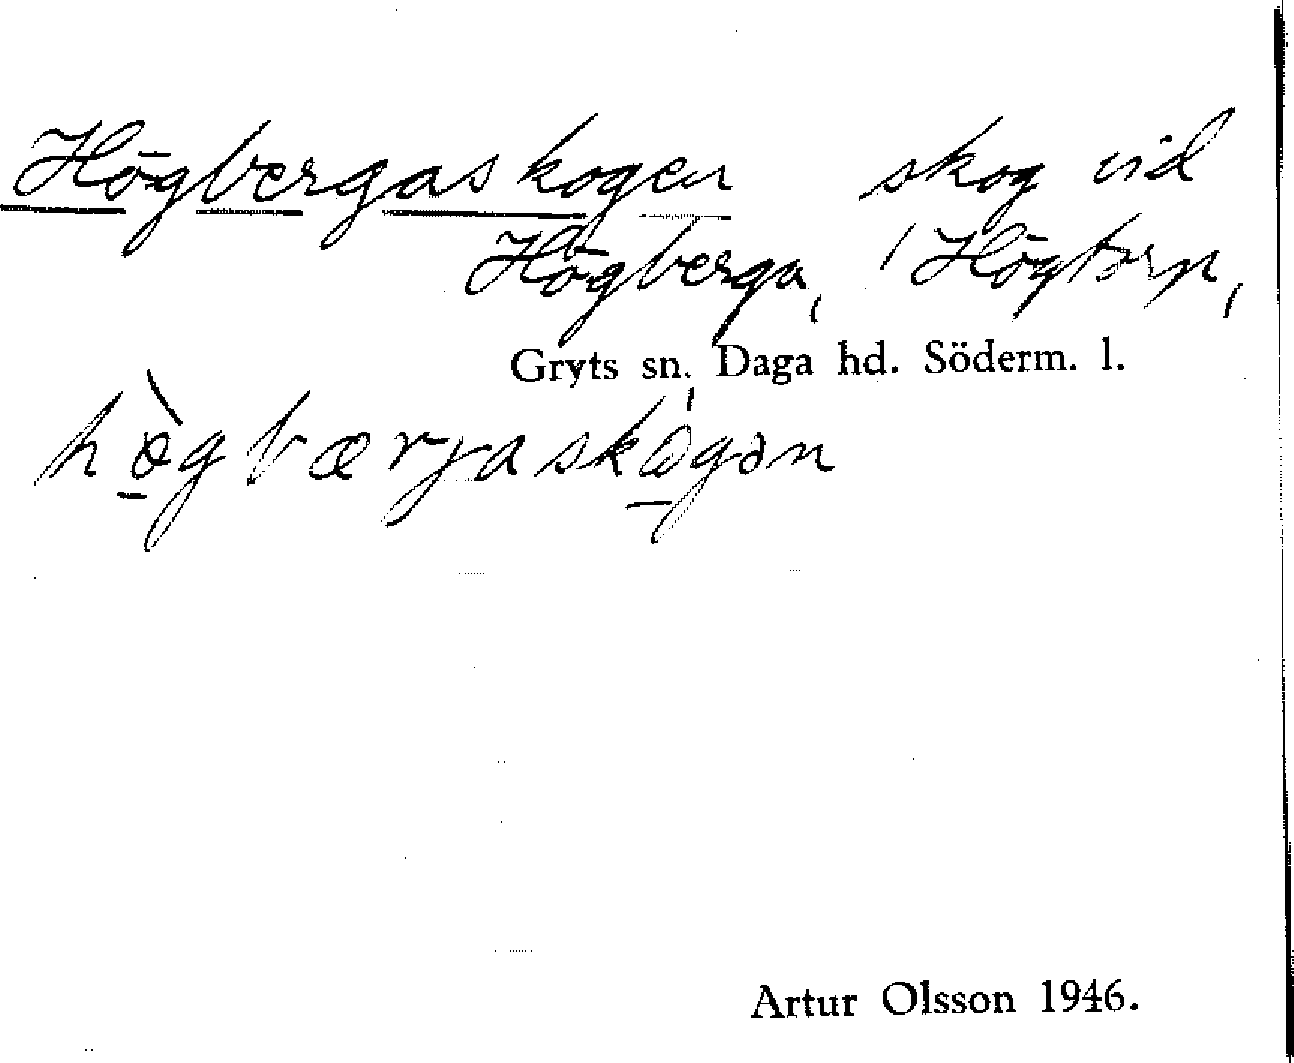 Högbergaskogen skog vid
Högberga, / Högtorp,
Gryts sn. Daga hd. Söderm. l.
hø̀gbærjaskògən
Artur Olsson 1946.